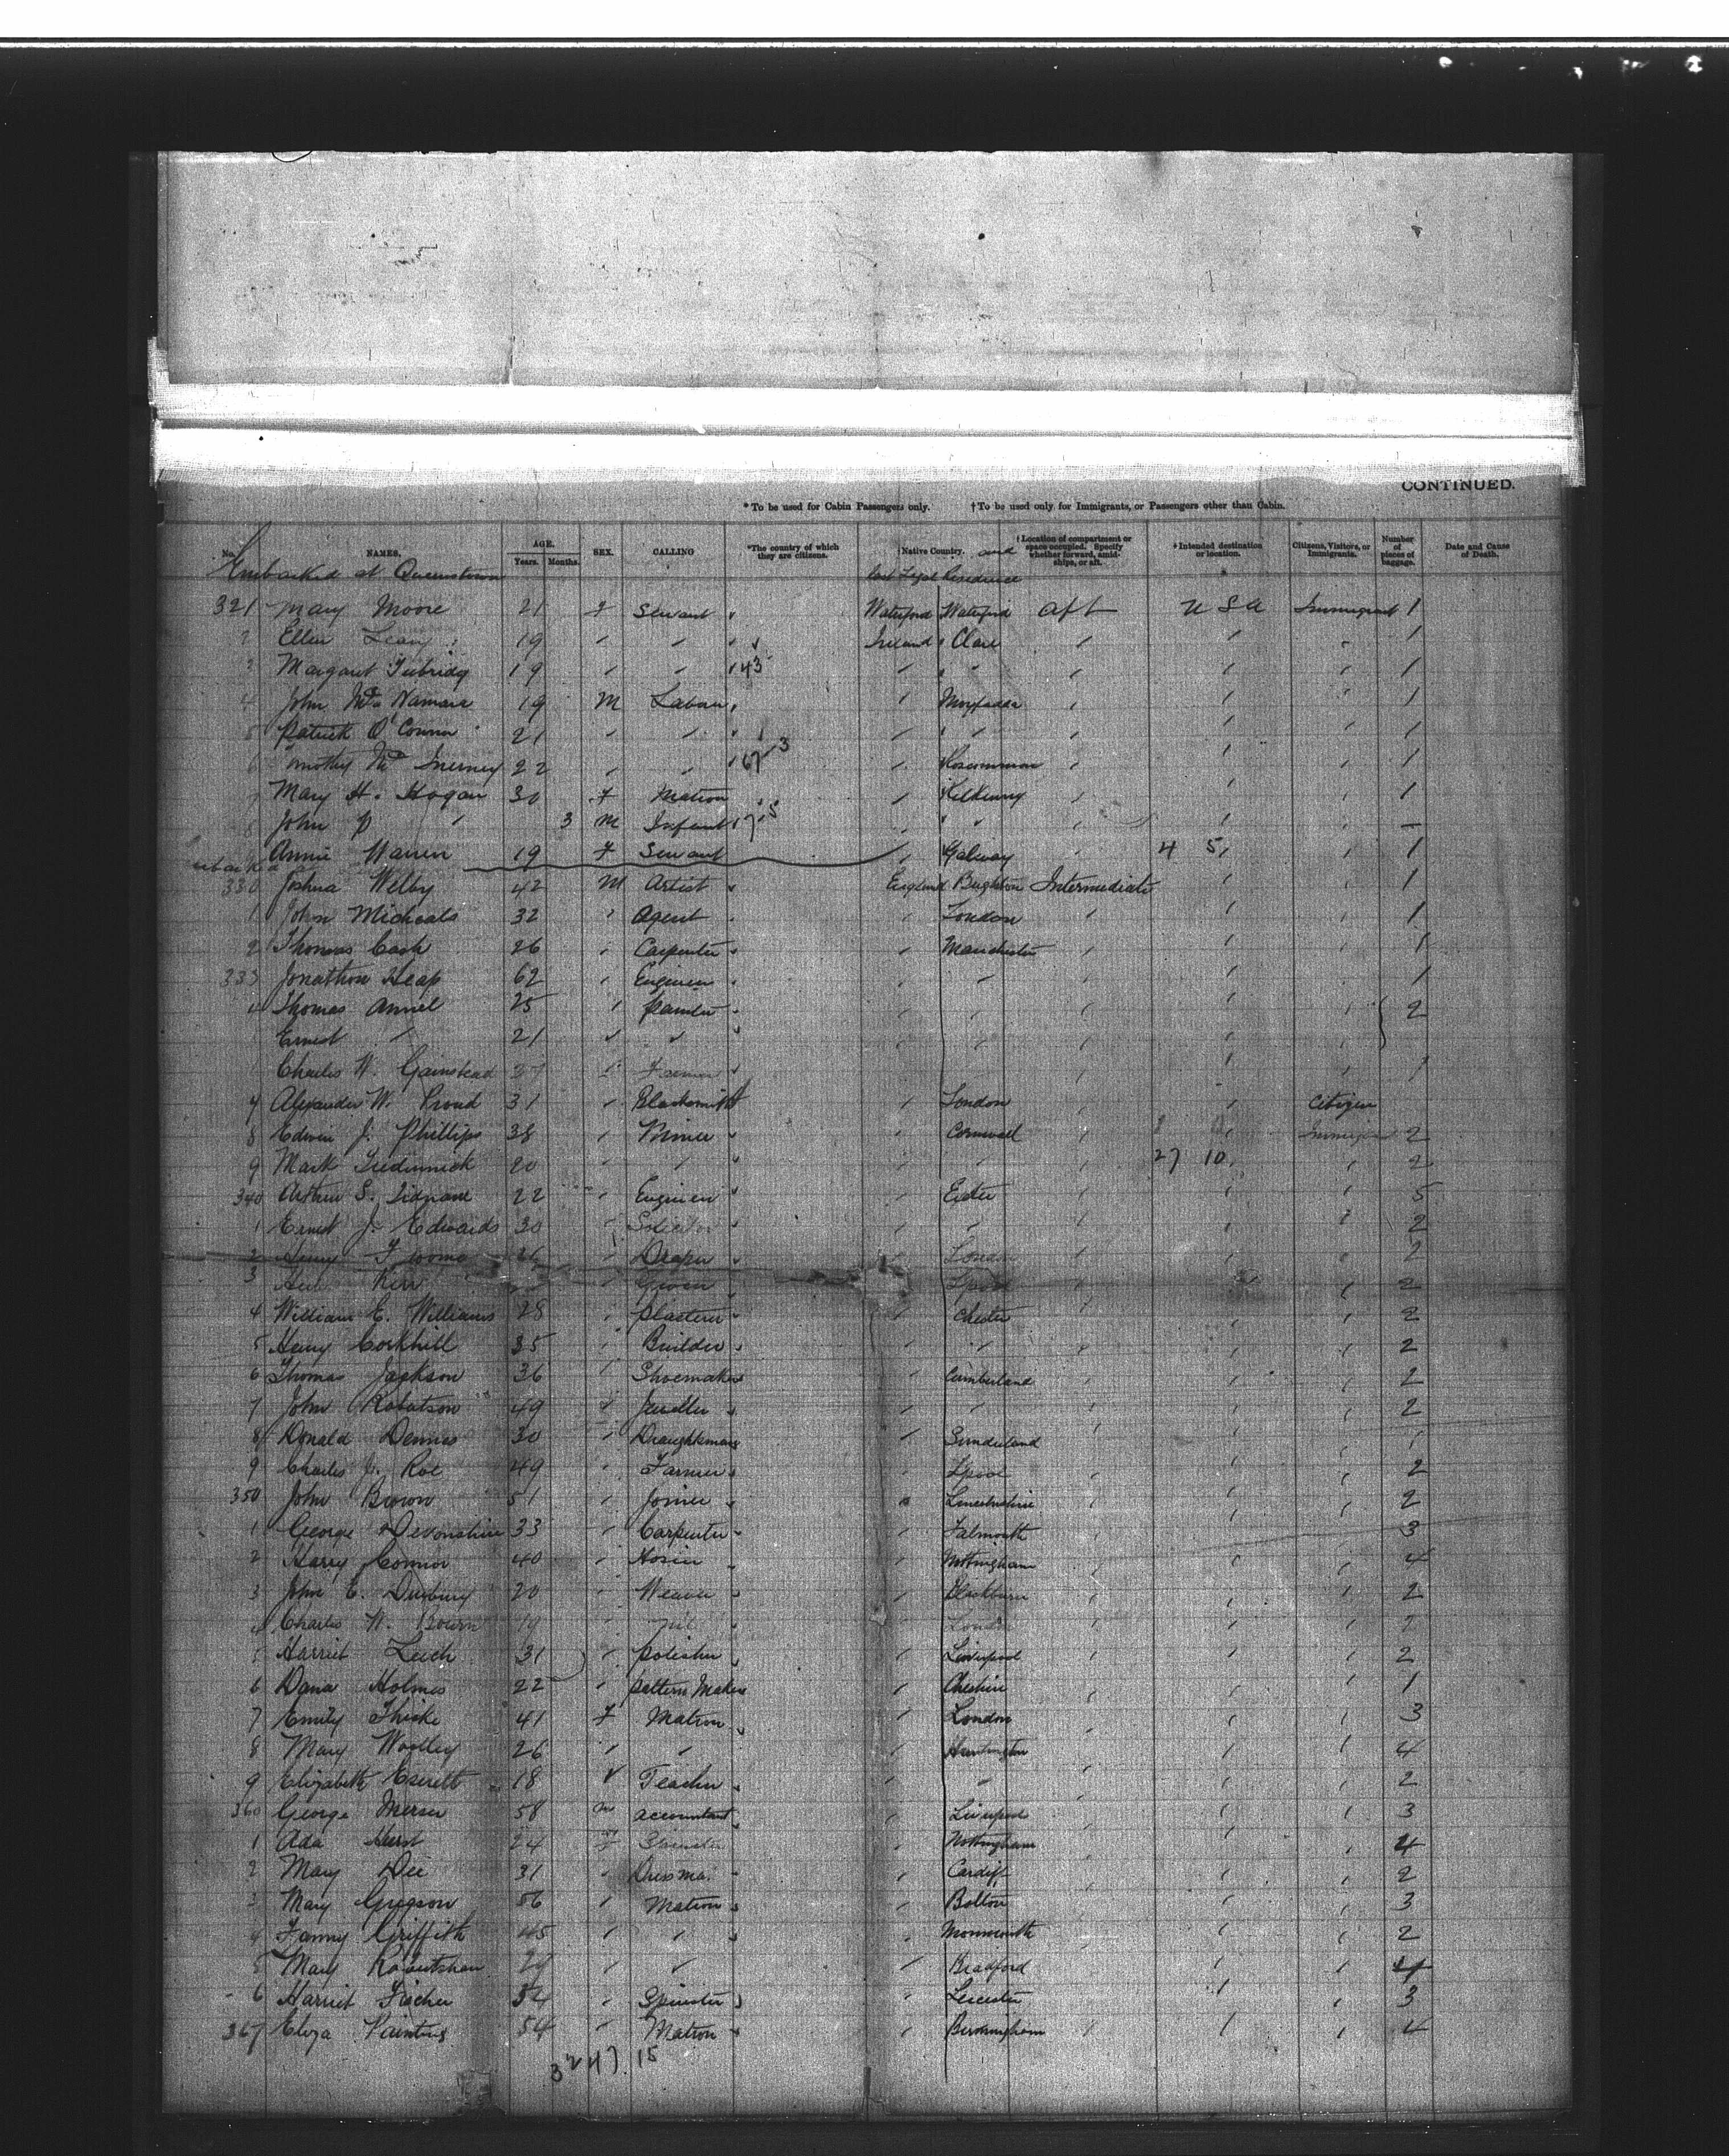 CONTINUED.
* To be used for Cabin Passengers only. † To be used only for Immigrants, or Passengers other than Cabin.
No. NAMES. AGE. Years. Months. SEX. CALLING *The country of which they are citizens. †Native Country. and †Location of compartment or space occupied. Specify whether forward, amidships, or aft. *Intended destination or location. Citizens, Visitors, or Immigrants. Number of pieces of baggage. Date and Cause of Death.
Embarked at Queenstown last Legal Residence
321 Mary Moore 21 F Servant Waterford Waterford Aft U S A Immigrant 1
2 Ellen 19 " " Ireland Clare " " " 1
3 Margaret Tubridy 19 " " 43 " " " " 1
4 John McNamara 19 M Labour " " " " 1
5 Patrick O'Connor 21 " " " " " " " 1
6 Timothy McInerney 22 " " 67 3 " Roscommon " " " 1
7 Mary H. Hogan 30 F Matron " Kilkenny " " " 1
8 John P " 3 M Infant " " " " " —
Annie Warren 19 F Servant " Galway " 4 5 " 1
330 Joshua Welby 42 M Artist England Brighton Intermediate " 1
1 John Micheals 32 " Agent " London " " " 1
2 Thomas Cash 26 " Carpenter " Manchester " " " 1
333 Jonathon Heap 62 " Engineer " " " " " 1
4 Thomas Annel 25 " Painter " " " " " 2
Ernest " 21 " " " " " " "
Charles W. Gainstead 27 " Farmer " " " " 1
7 Alexander W. Proud 31 " Blacksmith " London " " Citizen
8 Edwin J. Phillips 38 " Miner " Cornwall " " Immigrant 2
9 Mark Tredinnick 20 " " " " " 27 10 " 2
340 Arthur S. 22 " Engineer " Exeter " " " 5
1 Ernest J. Edwards 30 " Solicitor " " " " " 2
2 26 " Draper " London " " " 2
3 Kerr " Grocer " Lpool " " " 2
4 William E. Williams 28 " Plasterer " Chester " " " 2
5 Henry Corkhill 35 " Builder " " " " " 2
6 Thomas Jackson 36 " Shoemaker " Cumberland " " " 2
7 John Robertson 49 " " " " " " 2
8 Donald Dennis 30 " Draughtsman " Sunderland " " " 1
9 Charles J. Roe 49 " Farmer " Lpool " " " 2
350 John Brown 51 " Joiner " Lincolnshire " " " 2
1 George Devonshire 33 " Carpenter " Falmouth " " " 3
2 Harry Connor 40 " Hosier " Nottingham " " " 4
3 John E. Duxbury 20 " Weaver " Blackburn " " " 2
4 Charles W. Bourn 19 " Nil " London " " "
5 Harriet Leech 31 " Polisher " Liverpool " " " 2
6 Dana Holmes 22 " Pattern Maker " Cheshire " " " 1
7 Emily Thicke 41 F Matron " London " " " 3
8 Mary Woolley 26 " " " " " " 4
9 Elizabeth Everett 18 " Teacher " " " " " 2
360 George Mercer 58 M Accountant " Liverpool " " " 3
1 Ada Hurst 24 F Spinster " Nottingham " " " 4
2 Mary Dee 31 " Dressma. " Cardiff " " " 2
3 Mary Gregson 56 " Matron " Bolton " " " 3
4 Fanny Griffith 45 " " " Monmouth " " " 2
5 Mary Robertshaw 29 " " " Bradford " " " 4
6 Harriet Fischer 34 " Spinster " Leicester " " " 3
367 Eliza Painting 54 " Matron " Birmingham " " " 4
32 47 15